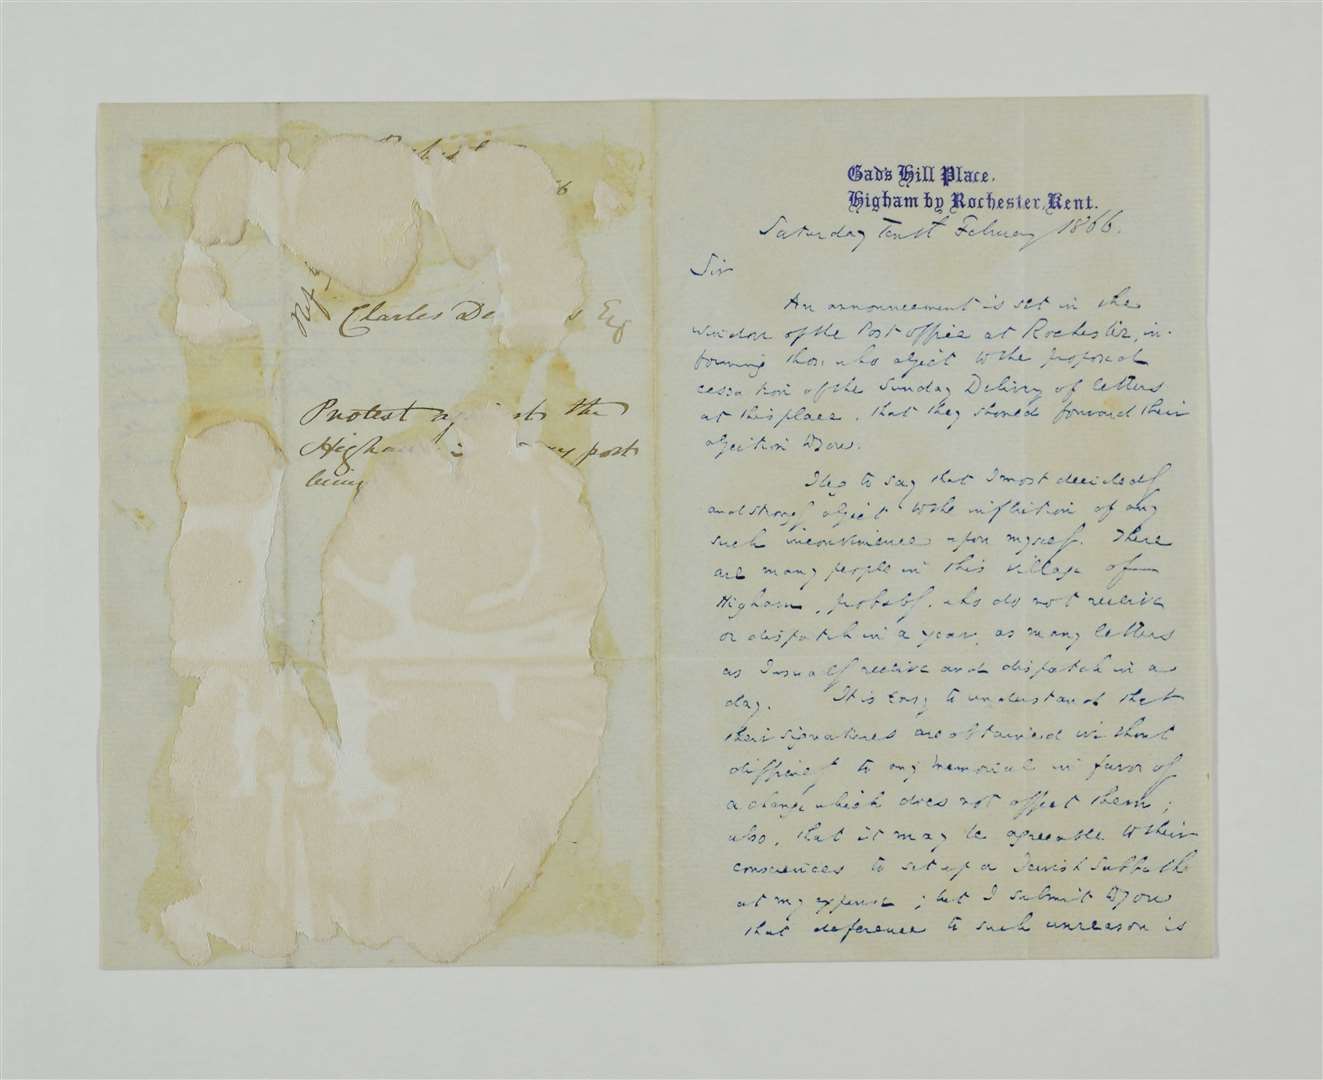 Charles De s Esq
Protest ag the
Higha post
being
Gad's Hill Place.
Higham by Rochester, Kent.
Saturday Tenth February 1866.
Sir
An announcement is set in the
window of the Post office at Rochester, in-
forming those who object to the proposed
cessation of the Sunday Delivery of letters
at this place, that they should forward their
objection to you.
I beg to say that I most decidedly
and strongly object to the infliction of any
such inconvenience upon myself. There
are many people in this village of
Higham, probably, who do not receive
or dispatch in a year, as many letters
as I usually receive and dispatch in a
day. It is easy to understand that
their signatures are obtained without
difficulty to any Memorial in favor of
a change which does not affect them;
also, that it may be agreeable to their
consciences to set up a Jewish Sabbath
at my expense; but I submit to you
that deference to such unreason is